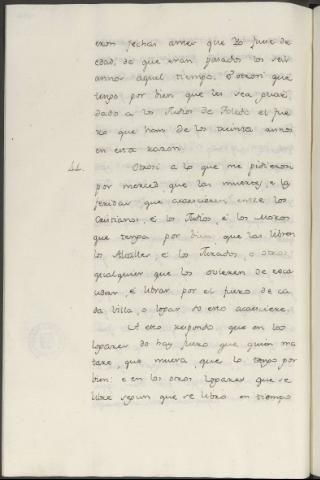 eron fechas antes que Yo fuese de
edad, de que eran pasados los seis
annos aquel tiempo. E otrosi que
tengo por bien que les sea guar
dado a los Judios de Toledo el fue
ro que han de los treinta annos
en esta razon.
44. Otrosi a lo que me pidieron
por merced, que las muertes, e las
feridas que acaescieren entre los
Christianos, e los Judios, e los Moros
que tenga por bien, que las libren
los Alcalles, e los Jurados, o otros
qualesquier que los ovieren de escu
char, e librar por el fuero de ca
da Villa, o logar do esto acaesciere.
A esto respondo, que en los
logares do hay fuero que quien ma
tare, que muera, que lo tengo por
bien: e en los otros logares que se
libre segun que se libro en tiempo